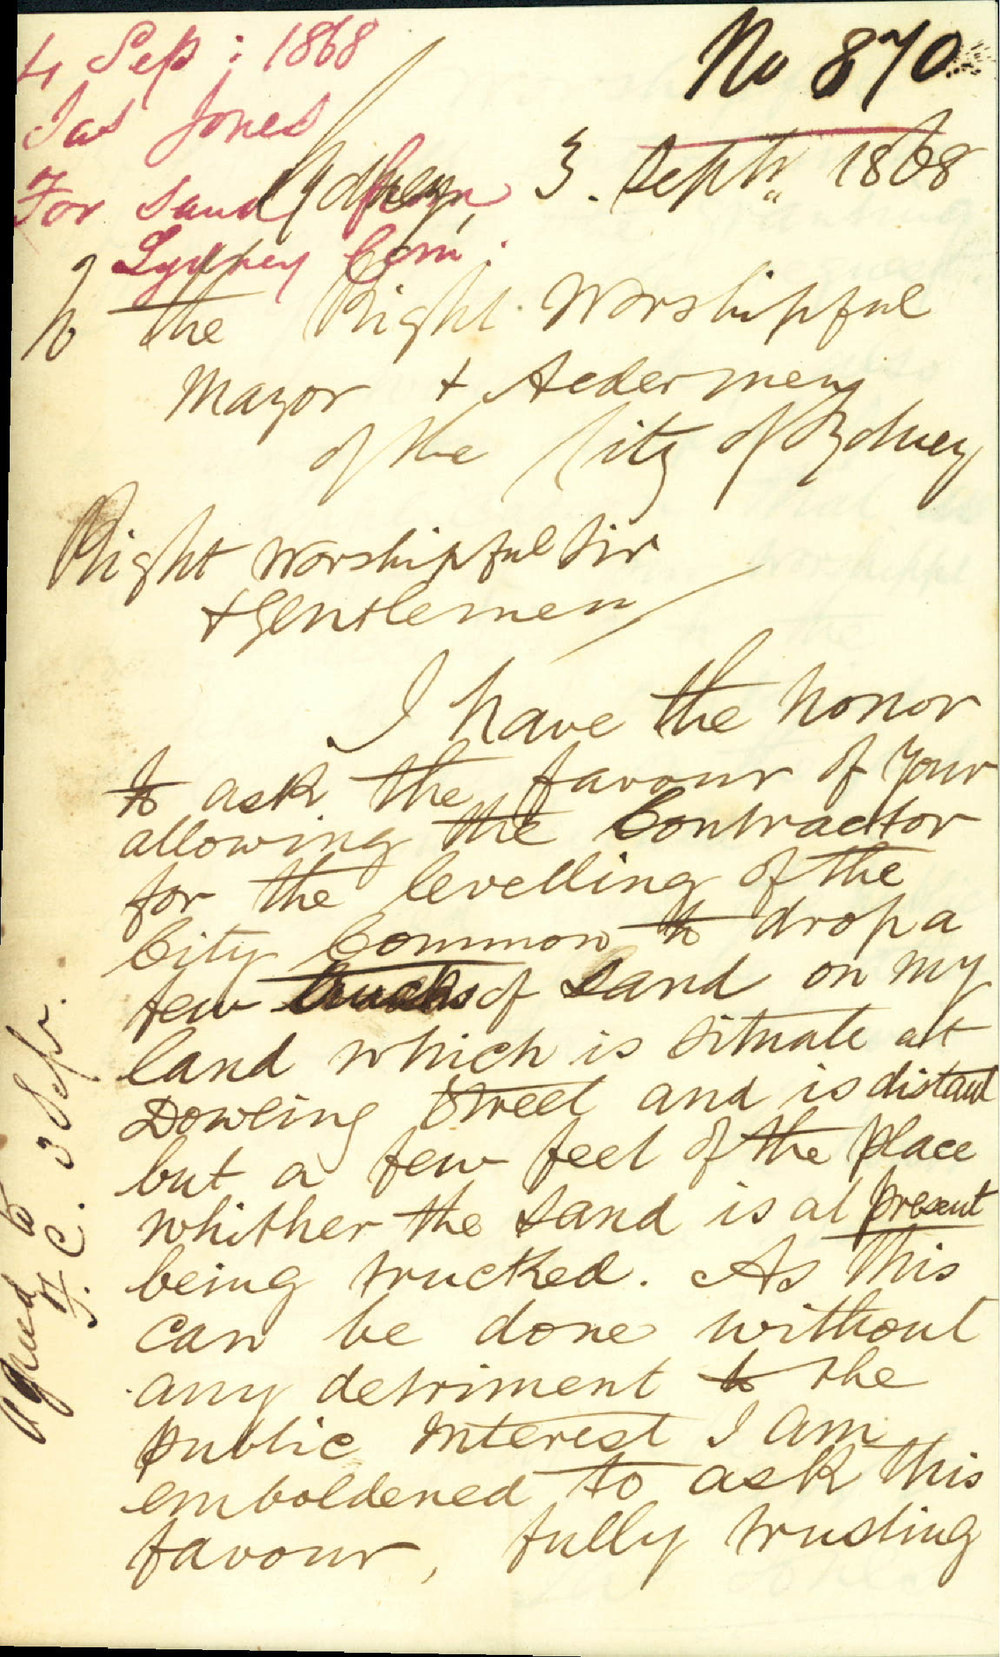 No 870
4 Sep : 1868
Jas Jones
For sand from
Sydney Com :
Sydney, 3. Septr,, 1868
To the Right Worshipful
Mayor + Aldermen
of the City of Sydney
Right Worshipful Sir
+ Gentlemen
I have the honor
to ask the favour of your
allowing the Contractor
for the levelling of the
City Common to drop a
few trucks of sand on my
land which is situate at
Dowling Street and is distant
but a few feet of the place
whither the sand is at present
being trucked. As this
can be done without
any detriment to the
public interest I am
emboldened to ask this
favour, fully trusting
Agreed to
F. C. 3 Sepr.